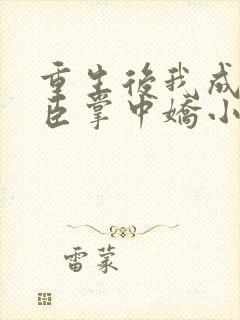 重生後我成
臣掌中嬌小
雷蒙